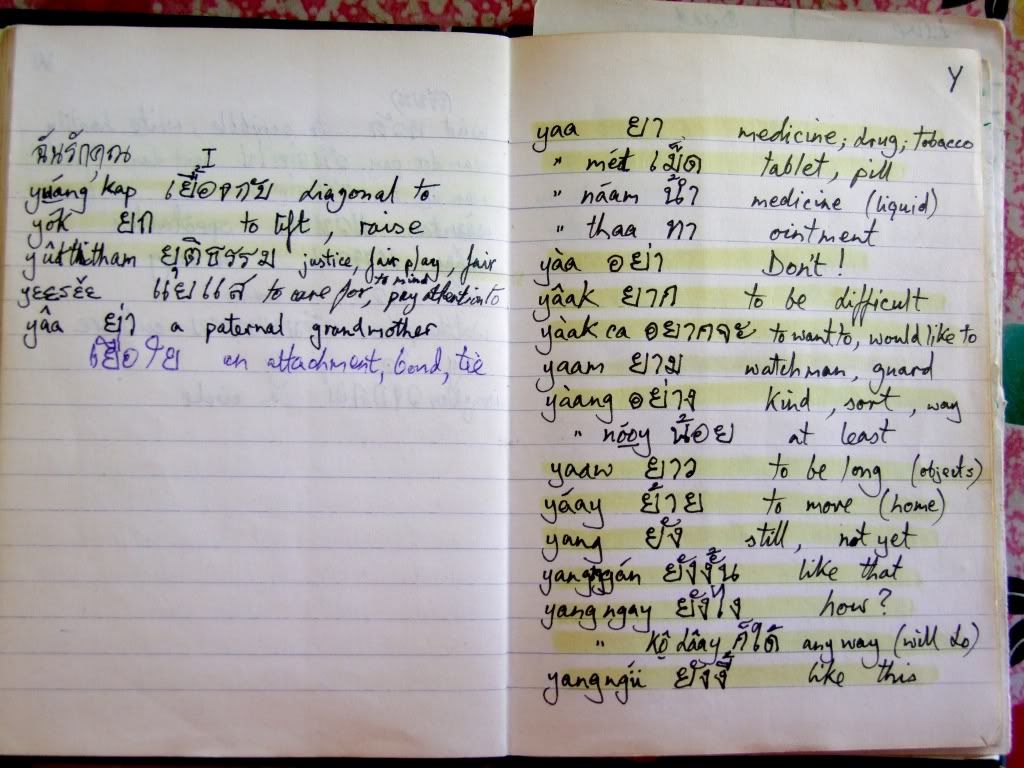 ฉันรักคุณ
I
yʉ́ang kap เยื้องกับ diagonal to
yók ยก to lift, raise
yúttitham ยุติธรรม justice, fair play, fair
yɛɛsɛ̌ɛ แยแส to care for, to mind, pay attention to
yâa ย่า a paternal grandmother
เยื่อใย an attachment, bond, tie
Y
yaa ยา medicine; drug; tobacco
" mét เม็ด tablet, pill
" náam น้ำ medicine (liquid)
" thaa ทา ointment
yàa อย่า Don't!
yâak ยาก to be difficult
yàak ca อยากจะ to want to, would like to
yaam ยาม watchman, guard
yàang อย่าง kind, sort, way
" nóoy น้อย at least
yaaw ยาว to be long (objects)
yáay ย้าย to move (home)
yang ยัง still, not yet
yangngán ยังงั้น like that
yangngay ยังไง how?
" kɔ̂ dâay ก็ได้ any way (will do)
yangngíi ยังงี้ like this